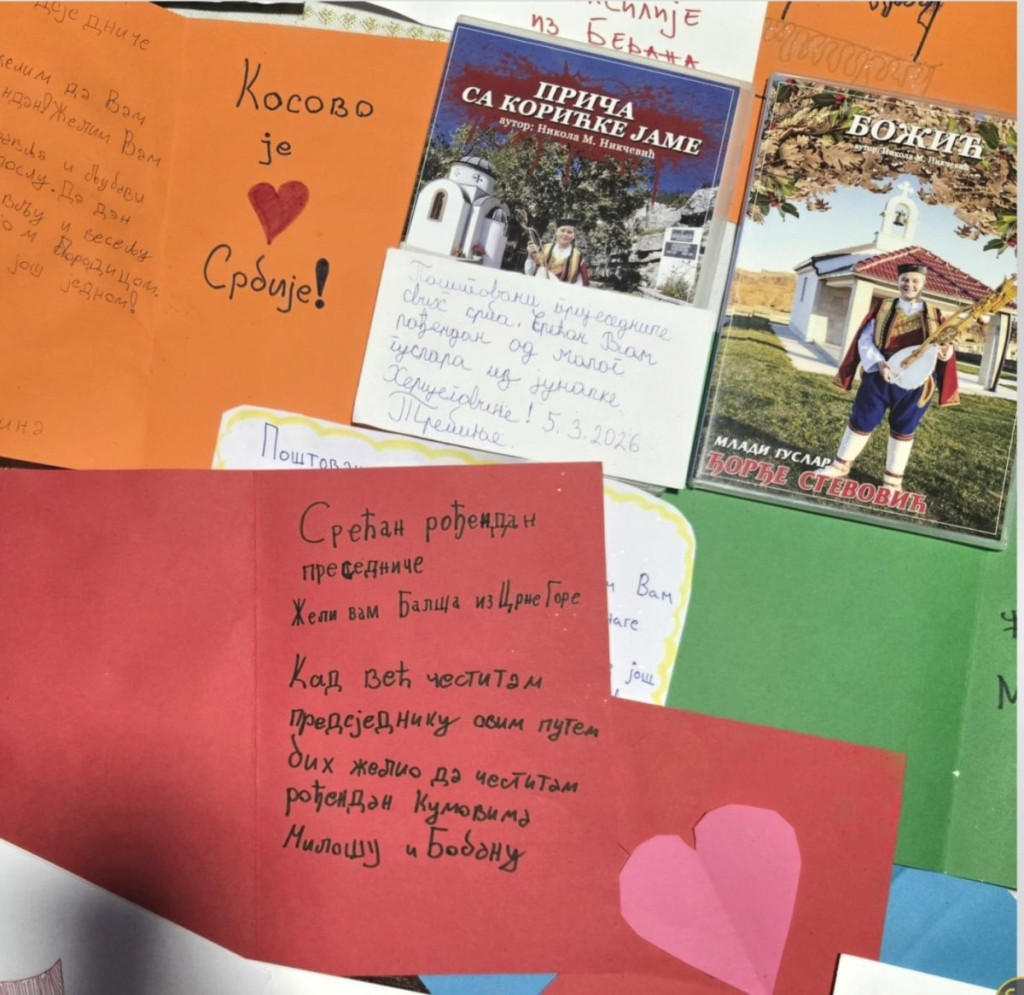 дниче
желим да Вам
Желим Вам
и љубави
послу. Да дан
и весељу
породицом.
још једном!
Косово
је
Србије!
из Берана
ПРИЧА
СА КОРИЋКЕ ЈАМЕ
аутор: Никола М. Никчевић
Поштовани прједседниче
свих срба. Срећан Вам
рођендан од малог
гуслара из јуначке
Херцеговине! 5.3.2026
Требиње.
БОЖИЋ
аутор: Никола М. Никчевић
МЛАДИ ГУСЛАР
ЂОРЂЕ СТЕВОВИЋ
Поштова
Вам
још
Срећан рођендан
преседниче
Жели вам Балша из Црне Горе
Кад већ честитам
предсједнику овим путем
бих желио да честитам
рођендан Кумовима
Милошу и Бобану